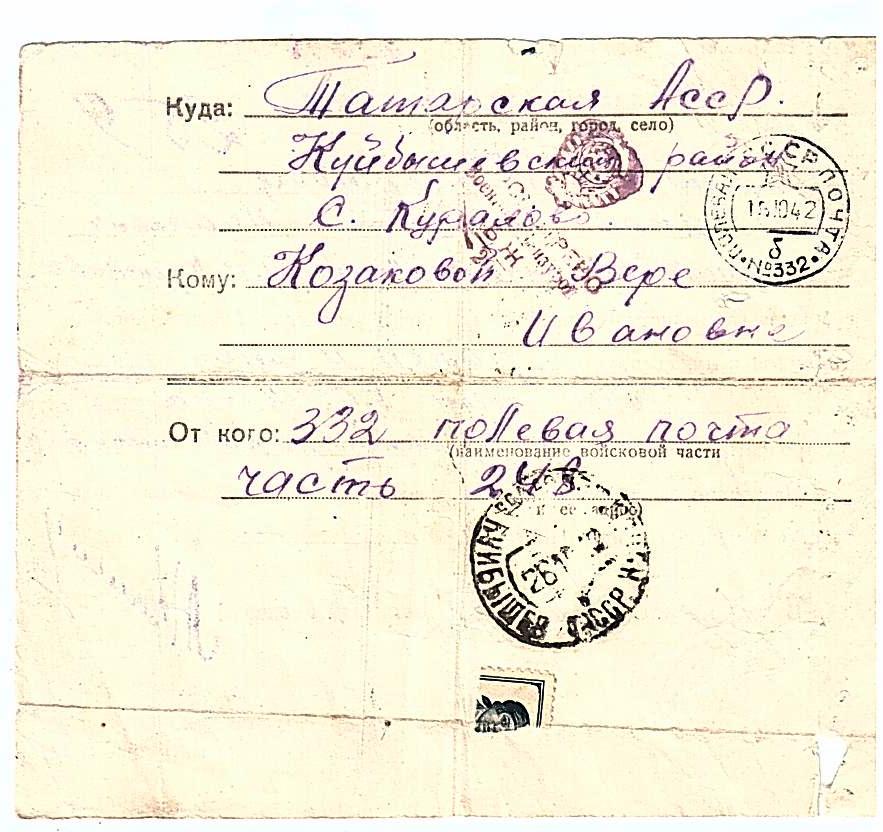 Куда: Татарская АССР.
(область, район, город, село)
Куйбышевский район
с. Куралово
Кому: Козаковой Вере
Ивановне
От кого: 332 полевая почта
(наименование войсковой части
часть 248
и ее адрес)
СССР ПОЧТА
18.10.42
б
№332
КУЙБЫШЕВ ТАССР
26